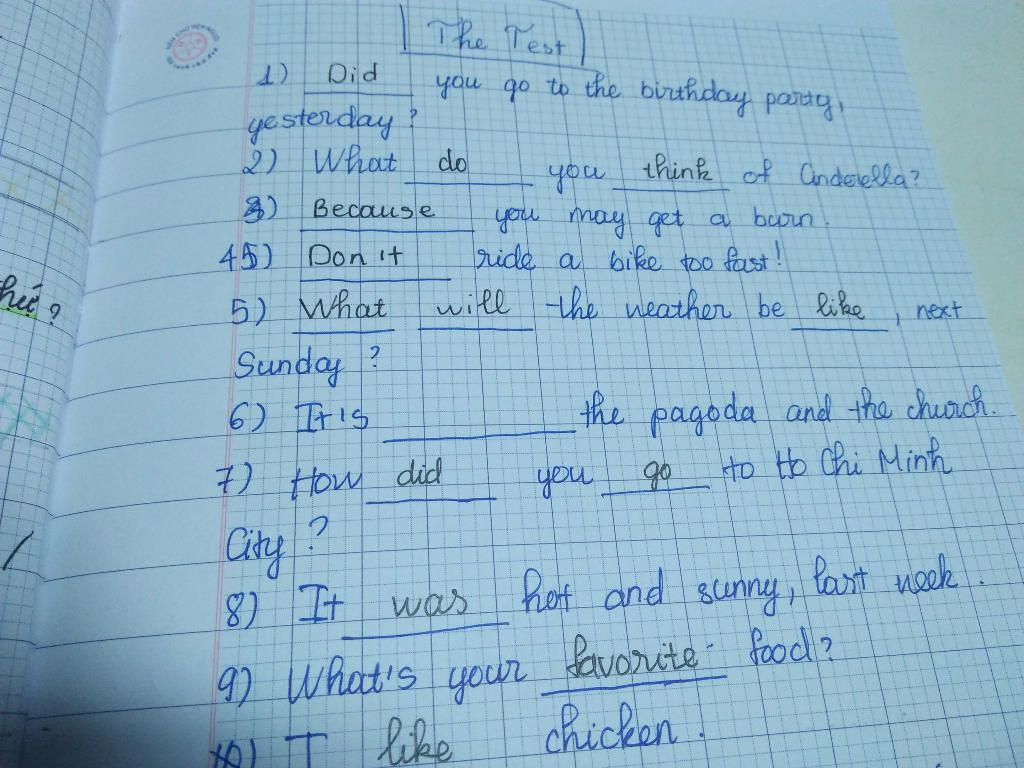 The Test
1) Did you go to the birthday party,
yesterday?
2) What do you think of Cinderella?
3) Because you may get a burn.
45) Don't ride a bike too fast!
5) What will the weather be like, next
Sunday?
6) It's ________ the pagoda and the church.
7) How did you go to Ho Chi Minh
City?
8) It was hot and sunny, last week.
9) What's your favorite food?
10) I like chicken.
?